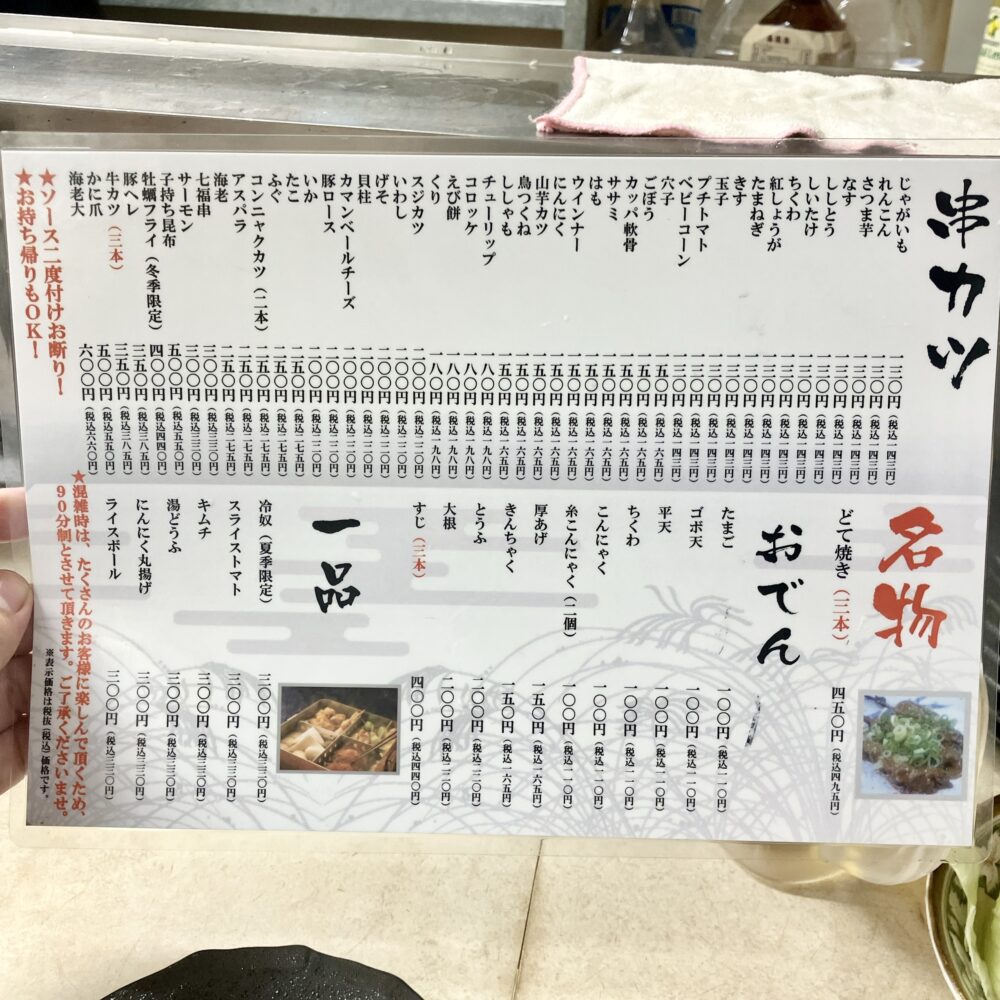 串カツ
じゃがいも 一三〇円（税込一四三円）
れんこん 一三〇円（税込一四三円）
さつま芋 一三〇円（税込一四三円）
なす 一三〇円（税込一四三円）
ししとう 一三〇円（税込一四三円）
しいたけ 一三〇円（税込一四三円）
ちくわ 一三〇円（税込一四三円）
紅しょうが 一三〇円（税込一四三円）
たまねぎ 一三〇円（税込一四三円）
きす 一三〇円（税込一四三円）
玉子 一三〇円（税込一四三円）
プチトマト 一三〇円（税込一四三円）
ベビーコーン 一三〇円（税込一四三円）
穴子 一五〇円（税込一六五円）
ごぼう 一五〇円（税込一六五円）
カッパ軟骨 一五〇円（税込一六五円）
ササミ 一五〇円（税込一六五円）
はも 一五〇円（税込一六五円）
ウインナー 一五〇円（税込一六五円）
にんにく 一五〇円（税込一六五円）
山芋カツ 一五〇円（税込一六五円）
鳥つくね 一五〇円（税込一六五円）
ししゃも 一五〇円（税込一六五円）
チューリップ 一八〇円（税込一九八円）
コロッケ 一八〇円（税込一九八円）
えび餅 一八〇円（税込一九八円）
くり 一八〇円（税込一九八円）
スジカツ 二〇〇円（税込二二〇円）
いわし 二〇〇円（税込二二〇円）
げそ 二〇〇円（税込二二〇円）
貝柱 二〇〇円（税込二二〇円）
カマンベールチーズ 二〇〇円（税込二二〇円）
豚ロース 二〇〇円（税込二二〇円）
いか 二〇〇円（税込二二〇円）
たこ 二五〇円（税込二七五円）
ふぐ 二五〇円（税込二七五円）
コンニャクカツ（二本） 二五〇円（税込二七五円）
アスパラ 二五〇円（税込二七五円）
海老 二五〇円（税込二七五円）
七福串 三〇〇円（税込三三〇円）
サーモン 三〇〇円（税込三三〇円）
子持ち昆布 五〇〇円（税込五五〇円）
牡蠣フライ（冬季限定） 四〇〇円（税込四四〇円）
豚ヘレ 三五〇円（税込三八五円）
牛カツ（三本） 三五〇円（税込三八五円）
かに爪 五〇〇円（税込五五〇円）
海老大 六〇〇円（税込六六〇円）
★ソース二度付けお断り！
★お持ち帰りもOK！
名物
どて焼き（三本） 四五〇円（税込四九五円）
おでん
たまご 一〇〇円（税込一一〇円）
ゴボ天 一〇〇円（税込一一〇円）
平天 一〇〇円（税込一一〇円）
ちくわ 一〇〇円（税込一一〇円）
こんにゃく 一〇〇円（税込一一〇円）
糸こんにゃく（二個） 一〇〇円（税込一一〇円）
厚あげ 一五〇円（税込一六五円）
きんちゃく 一五〇円（税込一六五円）
とうふ 二〇〇円（税込二二〇円）
大根 二〇〇円（税込二二〇円）
すじ（三本） 四〇〇円（税込四四〇円）
一品
冷奴（夏季限定） 三〇〇円（税込三三〇円）
スライストマト 三〇〇円（税込三三〇円）
キムチ 三〇〇円（税込三三〇円）
湯どうふ 三〇〇円（税込三三〇円）
にんにく丸揚げ 三〇〇円（税込三三〇円）
ライスボール 三〇〇円（税込三三〇円）
★混雑時は、たくさんのお客様に楽しんで頂くため、
90分制とさせて頂きます。ご了承くださいませ。
※表示価格は税抜（税込）価格です。